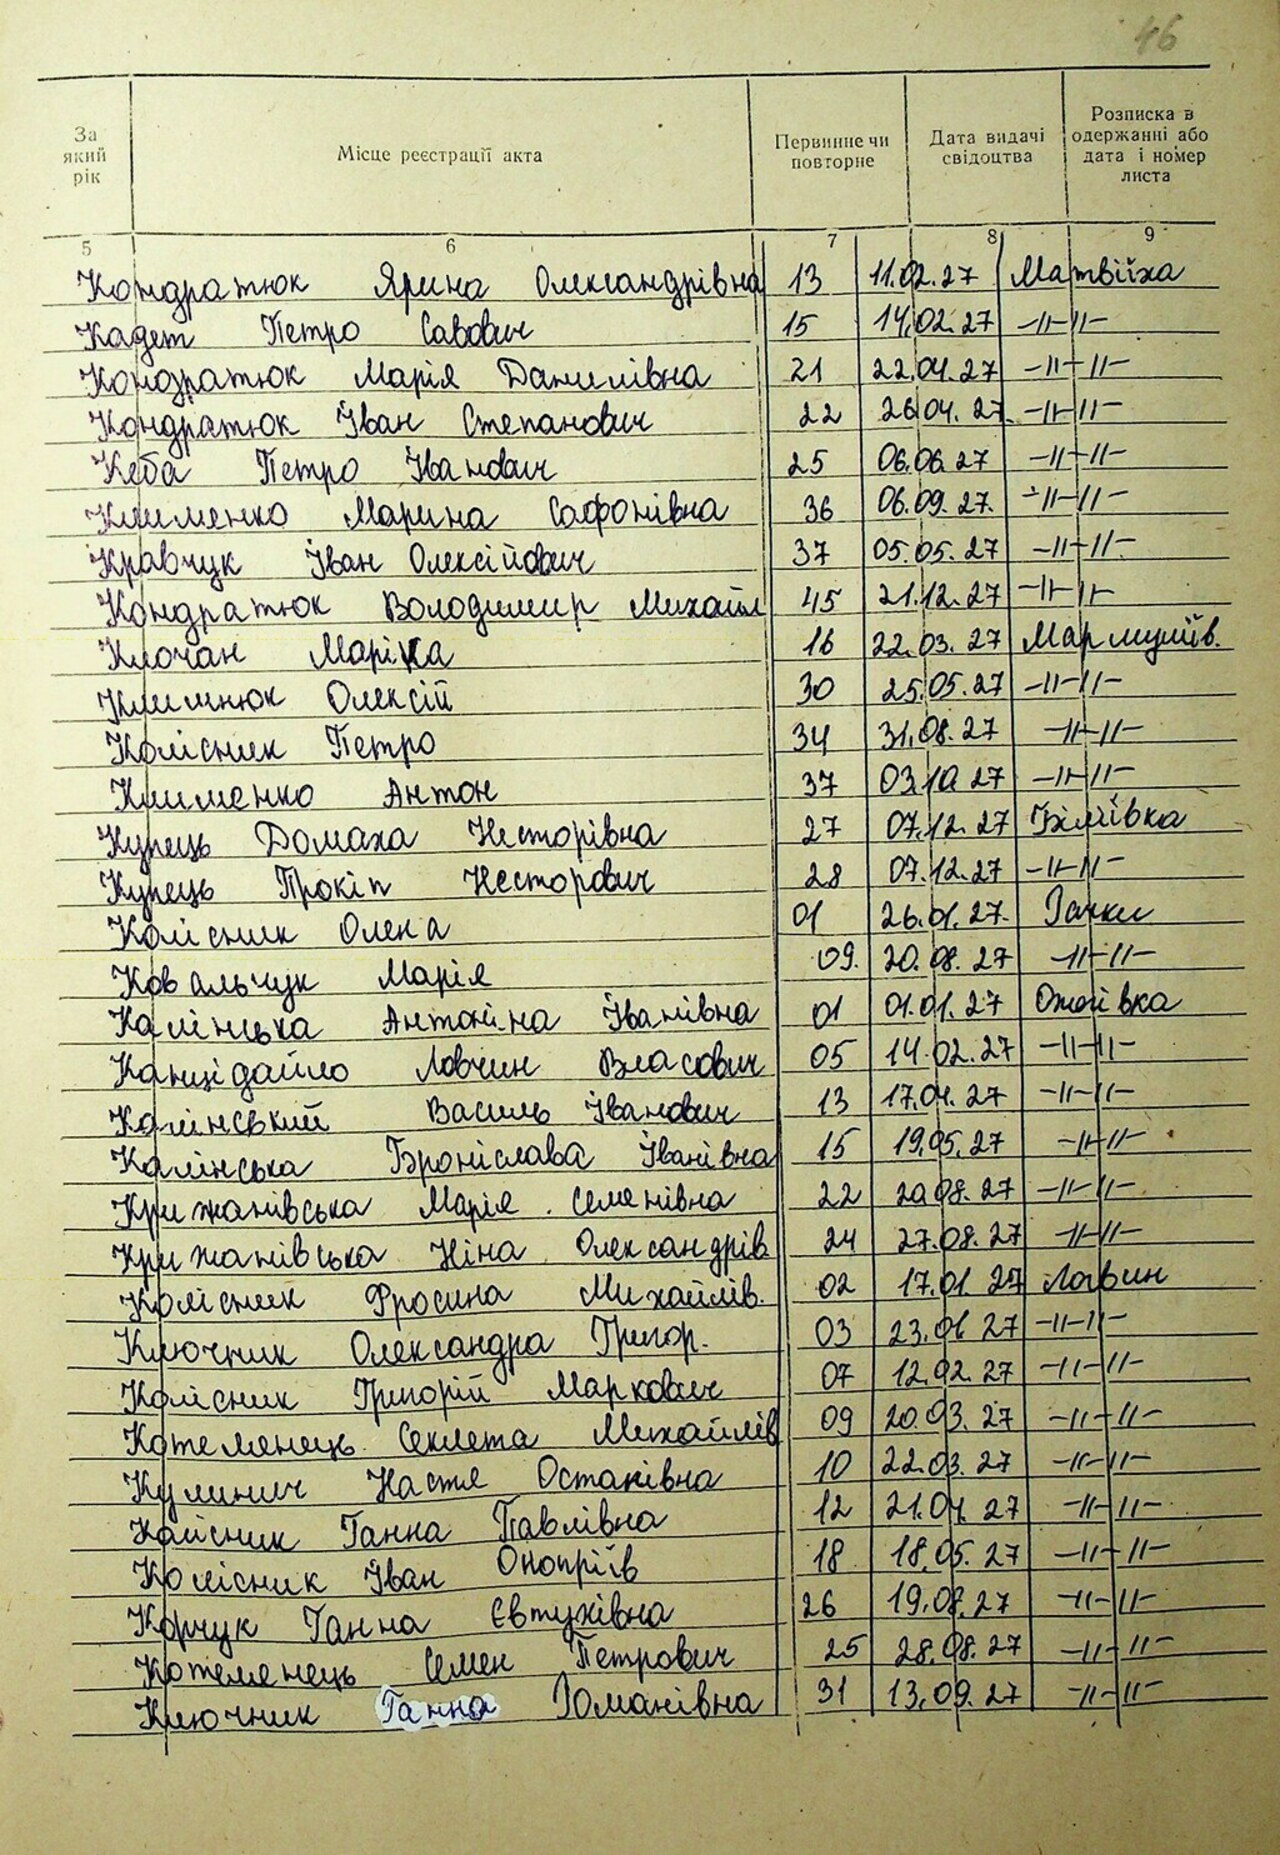 46
За який рік
Місце реєстрації акта
Первинне чи повторне
Дата видачі свідоцтва
Розписка в одержанні або дата і номер листа
5 6 7 8 9
Кондратюк Ярина Олександрівна 13 11.02.27 Матвіїха
Кадет Петро Савович 15 14.02.27 -//-//-
Кондратюк Марія Данилівна 21 22.04.27 -//-//-
Кондратюк Іван Степанович 22 26.04.27 -//-//-
Кеба Петро Іванович 25 06.06.27 -//-//-
Клименко Марина Сафонівна 36 06.09.27. -//-//-
Кравчук Іван Олексійович 37 05.05.27 -//-//-
Кондратюк Володимир Михайл 45 21.12.27 -//-//
Клочан Маріка 16 22.03.27 Мармуліїв.
Климнюк Олексій 30 25.05.27 -//-//-
Колісник Петро 34 31.08.27 -//-//-
Клименко Антон 37 03.10.27 -//-//-
Купець Домаха Несторівна 27 07.12.27 Біліївка
Купець Прокіп Несторович 28 07.12.27 -//-//-
Колісник Олена 01 26.01.27.
Ковальчук Марія 09. 20.08.27 -//-//-
Калінська Антоніна Іванівна 01 01.01.27 Ожиївка
Канцідайло Ловчин Власович 05 14.02.27 -//-//-
Калінський Василь Іванович 13 17.04.27 -//-//-
Калінська Броніслава Іванівна 15 19.05.27 -//-//-
Крижанівська Марія Семенівна 22 20.08.27 -//-//-
Крижанівська Ніна Олександрів. 24 27.08.27 -//-//-
Колісник Фросина Михайлів. 02 17.01.27 Логвин
Ключник Олександра Григор. 03 23.01.27 -//-//-
Колісник Григорій Маркович 07 12.02.27 -//-//-
Котеленець Секлета Михайлів 09 20.03.27 -//-//-
Кулинич Настя Остапівна 10 22.03.27 -//-//-
Колісник Ганна Павлівна 12 21.04.27 -//-//-
Колісник Іван Онопріїв 18 18.05.27 -//-//-
Корчук Ганна Євтухівна 26 19.08.27 -//-//-
Котеленець Семен Петрович 25 28.08.27 -//-//-
Ключник Ганна Романівна 31 13.09.27 -//-//-